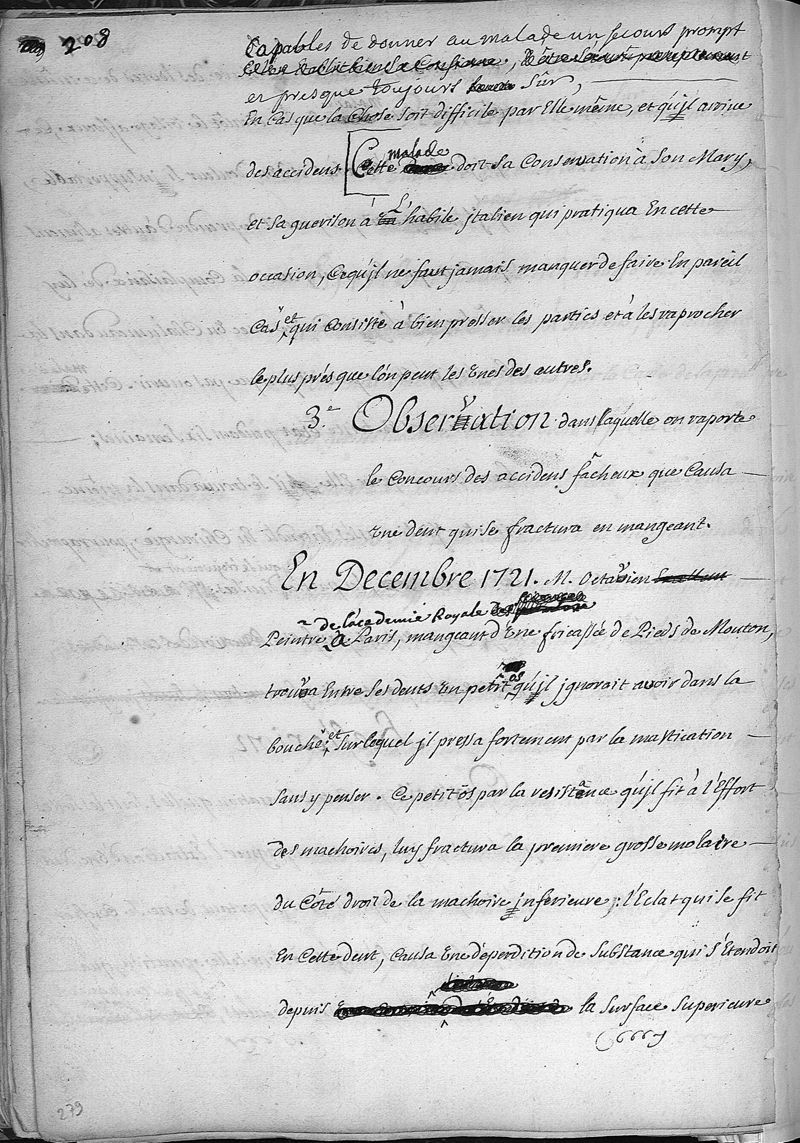 208
Capables de donner au malade un secours prompt
et presque toujours sûr,
En cas que la Chose soit difficile par Elle même, et qu'jl arrive
des accidens. [Cette malade doit sa Conservation à Son Mary,
et sa guerison à L'habile jtalien qui pratiqua En cette
occasion, Ce qu'jl ne faut jamais manquer de faire En pareil
Cas, et qui Consiste à bien presser les parties et à les raprocher
le plus près que l'on peut les Unes des autres.
3.e Observation dans laquelle on raporte
le Concours des accidens fâcheux que Causa
Une dent qui se fractura en mangeant.
En Decembre 1721. M. Octavien
de l'academie Royale
Peintre à Paris, mangeant d'Une fricassée de Pieds de Mouton,
trouva Entre ses dents Un petit os qu'jl jgnorait avoir dans la
bouche, et sur lequel jl pressa fortement par la mastication
sans y penser. Ce petit os par la resistance qu'jl fit à l'Effort
des machoires, luy fractura la premiere grosse molaire
du Côté droit de la machoire jnferieure; l'Eclat qui se fit
En Cette dent, Causa Une déperdition de Substance qui s'Etendoit
depuis la Surface Superieure
279